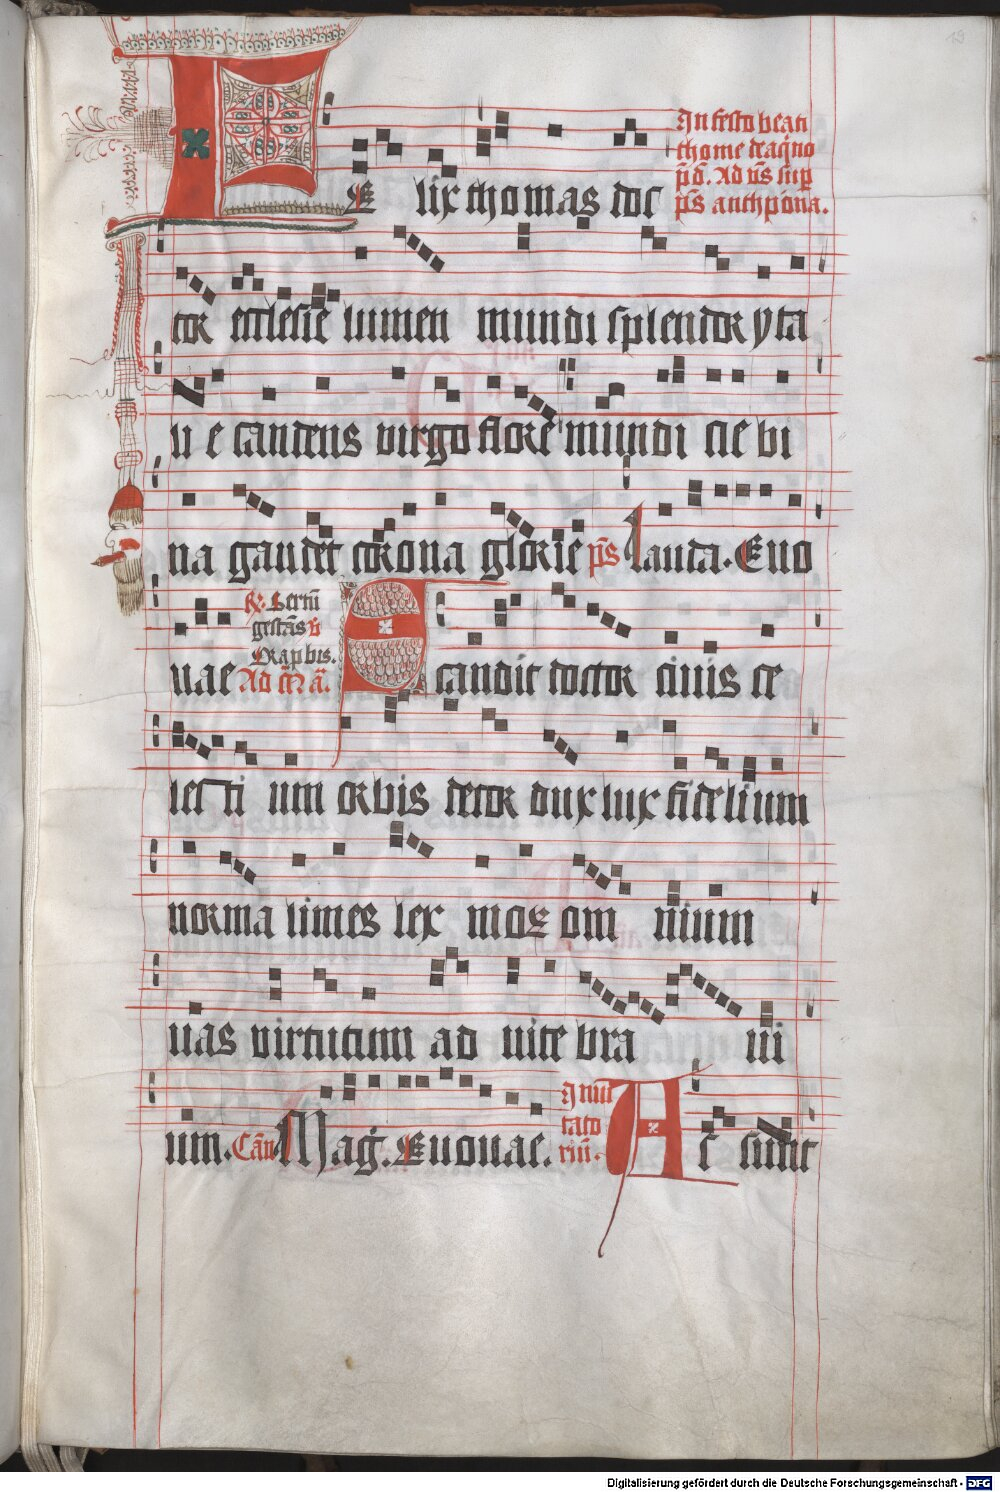 19
In festo beati
thome de aq̄no
p̄d. Ad v̄s sup̄
p̄s anthp̄ona.
FElix thomas doc
tor ecclesie lumen mundi splendor yta
li e candens virgo flore mundi cie bi
na gaudet corona glorie p̄s Lauda. Euo
uae
℟. Sertū
gestās v̄
Orap bis.
Ad
Scandit doctor ciuis ce
lesti um orbis decor dux lux fidelium
norma limes lex moꝝ om nium
uas virtutum ad uite bra ui
um. Cān Mag̃. Euouae.
Inuī
tato
riū.
Ac sīdit
Digitalisierung gefördert durch die Deutsche Forschungsgemeinschaft - DFG